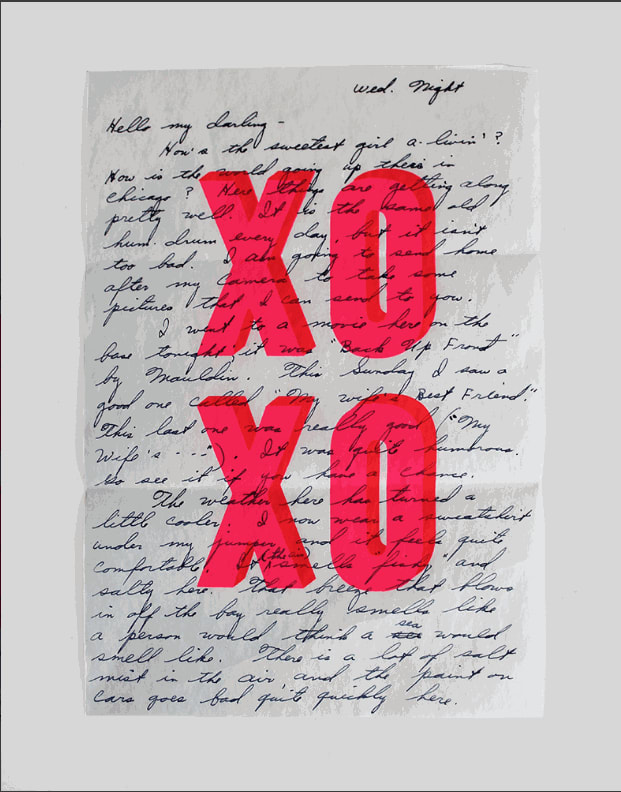 Wed. Night
Hello my darling -
How's the sweetest girl a-livin'?
How is the world going up there in
Chicago? Here things are getting along
pretty well. It is the same old
hum-drum every day, but it isn't
too bad. I am going to send home
after my camera to take some
pictures that I can send to you.
I went to a movie here on the
base tonight; it was "Back Up Front"
by Mauldin. This Sunday I saw a
good one called "My wife's Best Friend."
This last one was really good ("My
Wife's ---"). It was quite humorous.
Go see it if you have a chance.
The weather here has turned a
little cooler. I now wear a sweatshirt
under my jumper and it feels quite
comfortable. It (the air) smells "fishy" and
salty here. That breeze that blows
in off the bay really smells like
a person would think a sea would
smell like. There is a lot of salt
mist in the air, and the paint on
cars goes bad quite quickly here.
XO
XO